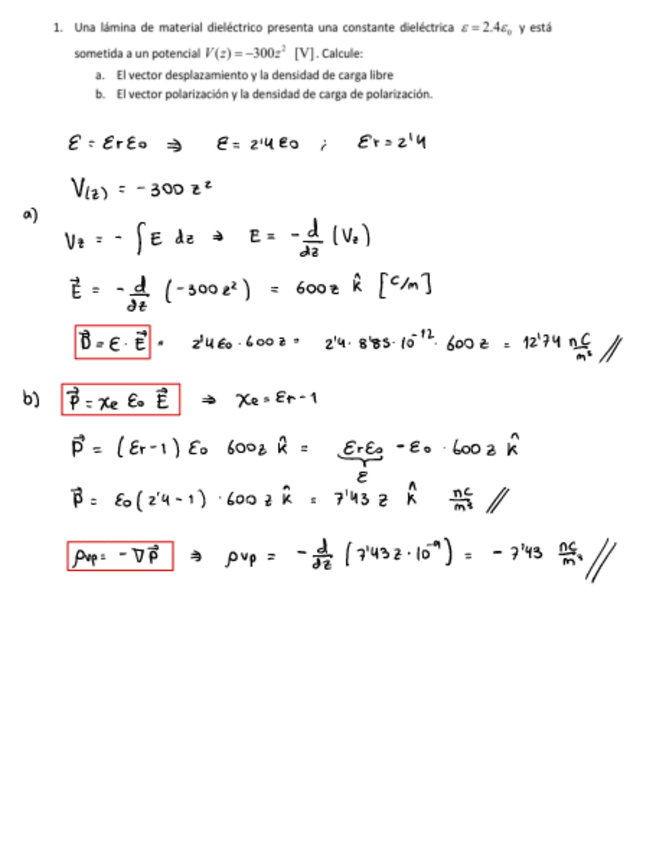 1. Una lámina de material dieléctrico presenta una constante dieléctrica ε = 2.4ε₀ y está
sometida a un potencial V(z) = −300z² [V]. Calcule:
a. El vector desplazamiento y la densidad de carga libre
b. El vector polarización y la densidad de carga de polarización.
ε = εrε₀ ⇒ ε = 2'4 ε₀ ; εr = 2'4
V(z) = - 300 z²
a)
Vz = - ∫ E dz ⇒ E = - d/dz (Vz)
E⃗ = - d/dz (-300 z²) = 600 z k̂ [C/m]
D⃗ = ε · E⃗ = 2'4 ε₀ · 600 z = 2'4 · 8'85 · 10⁻¹² · 600 z = 12'74 nC/m² //
b) P⃗ = χe ε₀ E⃗ ⇒ χe = εr - 1
P⃗ = (εr - 1) ε₀ 600 z k̂ = εrε₀ - ε₀ · 600 z k̂
ε
P⃗ = ε₀ (2'4 - 1) · 600 z k̂ = 7'43 z k̂ nC/m² //
ρvp = - ∇P⃗ ⇒ ρvp = - d/dz (7'43 z · 10⁻⁹) = - 7'43 nC/m³ //